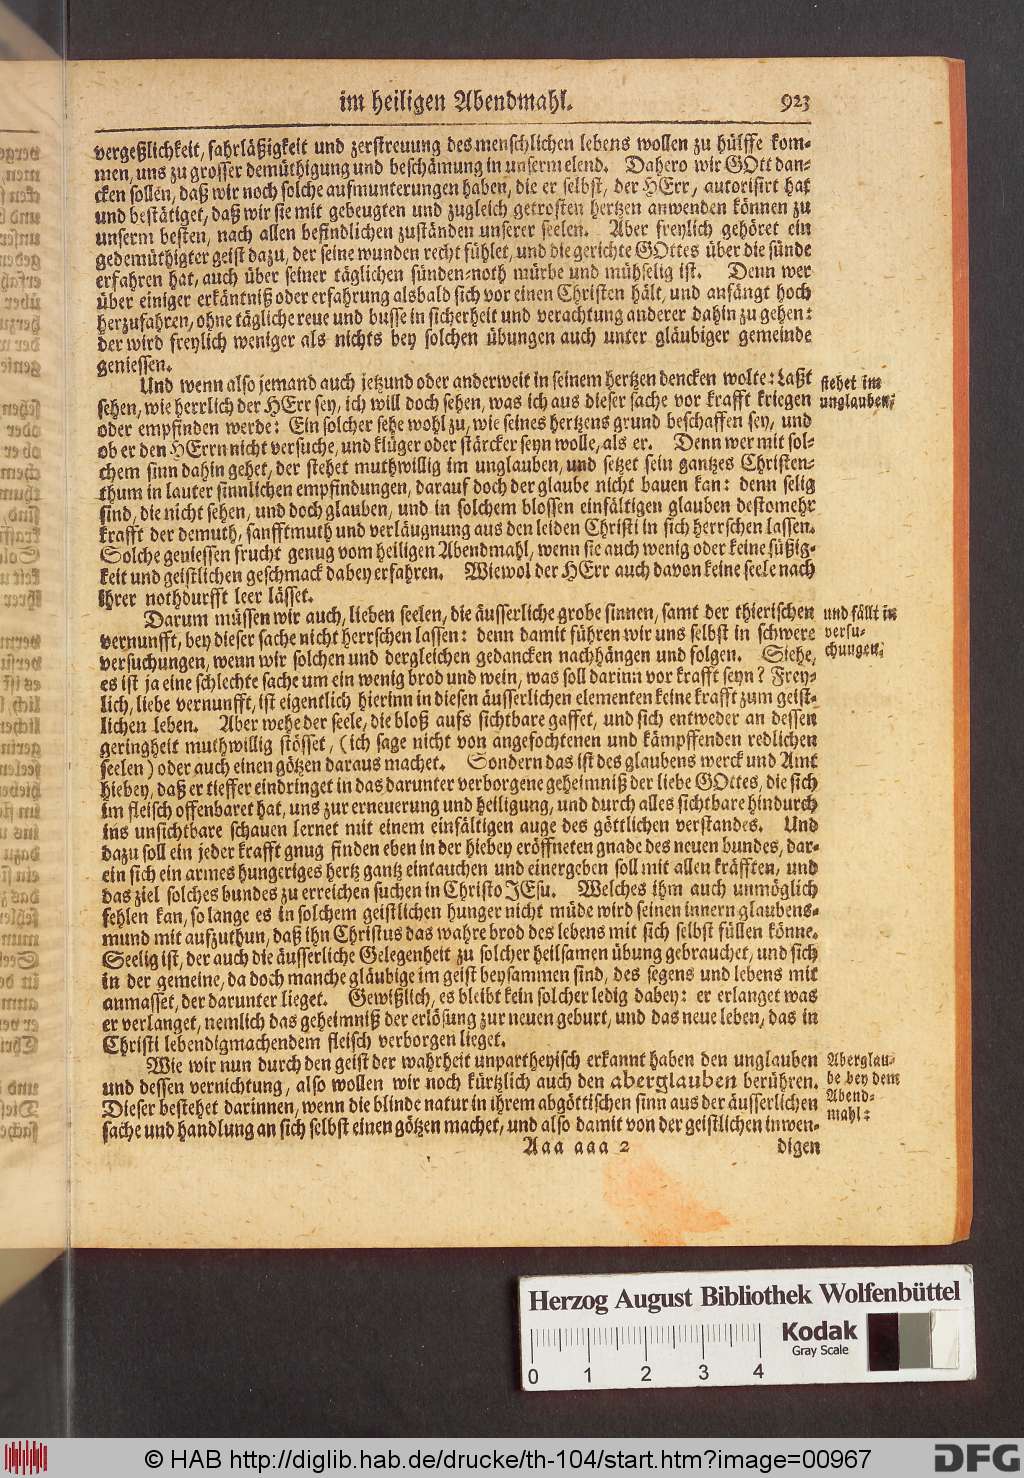 im heiligen Abendmahl.
923
vergeßlichkeit, fahrläßigkeit und zerstreuung des menschlichen lebens wollen zu hülffe kom-
men, uns zu grosser demüthigung und beschämung in unserm elend. Dahero wir GOtt dan-
cken sollen, daß wir noch solche aufmunterungen haben, die er selbst, der HErr, autorisirt hat
und bestätiget, daß wir sie mit gebeugten und zugleich getrosten hertzen anwenden können zu
unserm besten, nach allen befindlichen zuständen unserer seelen. Aber freylich gehöret ein
gedemüthigter geist dazu, der seine wunden recht fühlet, und die gerichte GOttes über die sünde
erfahren hat, auch über seiner täglichen sünden-noth mürbe und mühselig ist. Denn wer
über einiger erkäntniß oder erfahrung alsbald sich vor einen Christen hält, und anfängt hoch
herzufahren, ohne tägliche reue und busse in sicherheit und verachtung anderer dahin zu gehen:
der wird freylich weniger als nichts bey solchen übungen auch unter gläubiger gemeinde
geniessen.
Und wenn also jemand auch jetzund oder anderweit in seinem hertzen dencken wolte: Laßt
sehen, wie herrlich der HErr sey, ich will doch sehen, was ich aus dieser sache vor krafft kriegen
oder empfinden werde: Ein solcher sehe wohl zu, wie seines hertzens grund beschaffen sey, und
ob er den HErrn nicht versuche, und klüger oder stärcker seyn wolle, als er. Denn wer mit sol-
chem sinn dahin gehet, der stehet muthwillig im unglauben, und setzet sein gantzes Christen-
thum in lauter sinnlichen empfindungen, darauf doch der glaube nicht bauen kan: denn selig
sind, die nicht sehen, und doch glauben, und in solchem blossen einfältigen glauben destomehr
krafft der demuth, sanfftmuth und verläugnung aus den leiden Christi in sich herrschen lassen.
Solche geniessen frucht genug vom heiligen Abendmahl, wenn sie auch wenig oder keine süßig-
keit und geistlichen geschmack dabey erfahren. Wiewol der HErr auch davon keine seele nach
ihrer nothdurfft leer lässet.
stehet im
unglauben,
Darum müssen wir auch, lieben seelen, die äusserliche grobe sinnen, samt der thierischen
vernunfft, bey dieser sache nicht herrschen lassen: denn damit führen wir uns selbst in schwere
versuchungen, wenn wir solchen und dergleichen gedancken nachhängen und folgen. Siehe,
es ist ja eine schlechte sache um ein wenig brod und wein, was soll darinn vor krafft seyn? Frey-
lich, liebe vernunfft, ist eigentlich hierinn in diesen äusserlichen elementen keine krafft zum geist-
lichen leben. Aber wehe der seele, die bloß aufs sichtbare gaffet, und sich entweder an dessen
geringheit muthwillig stösset, (ich sage nicht von angefochtenen und kämpffenden redlichen
seelen) oder auch einen götzen daraus machet. Sondern das ist des glaubens werck und Amt
hiebey, daß er tieffer eindringet in das darunter verborgene geheimniß der liebe GOttes, die sich
im fleisch offenbaret hat, uns zur erneuerung und heiligung, und durch alles sichtbare hindurch
ins unsichtbare schauen lernet mit einem einfältigen auge des göttlichen verstandes. Und
dazu soll ein jeder krafft gnug finden eben in der hiebey eröffneten gnade des neuen bundes, dar-
ein sich ein armes hungeriges hertz gantz eintauchen und einergeben soll mit allen kräfften, und
das ziel solches bundes zu erreichen suchen in Christo JEsu. Welches ihm auch unmöglich
fehlen kan, so lange es in solchem geistlichen hunger nicht müde wird seinen innern glaubens-
mund mit aufzuthun, daß ihn Christus das wahre brod des lebens mit sich selbst füllen könne.
Seelig ist, der auch die äusserliche Gelegenheit zu solcher heilsamen übung gebrauchet, und sich
in der gemeine, da doch manche gläubige im geist beysammen sind, des segens und lebens mit
anmasset, der darunter lieget. Gewißlich, es bleibt kein solcher ledig dabey: er erlanget was
er verlanget, nemlich das geheimniß der erlösung zur neuen geburt, und das neue leben, das in
Christi lebendigmachendem fleisch verborgen lieget.
und fällt in
versu-
chungen.
Wie wir nun durch den geist der wahrheit unpartheyisch erkannt haben den unglauben
und dessen vernichtung, also wollen wir noch kürtzlich auch den aberglauben berühren.
Dieser bestehet darinnen, wenn die blinde natur in ihrem abgöttischen sinn aus der äusserlichen
sache und handlung an sich selbst einen götzen machet, und also damit von der geistlichen inwen-
Aberglau-
be bey dem
Abend-
mahl:
Aaa aaa 2
digen
Herzog August Bibliothek Wolfenbüttel
Kodak
Gray Scale
0 1 2 3 4
© HAB http://diglib.hab.de/drucke/th-104/start.htm?image=00967
DFG